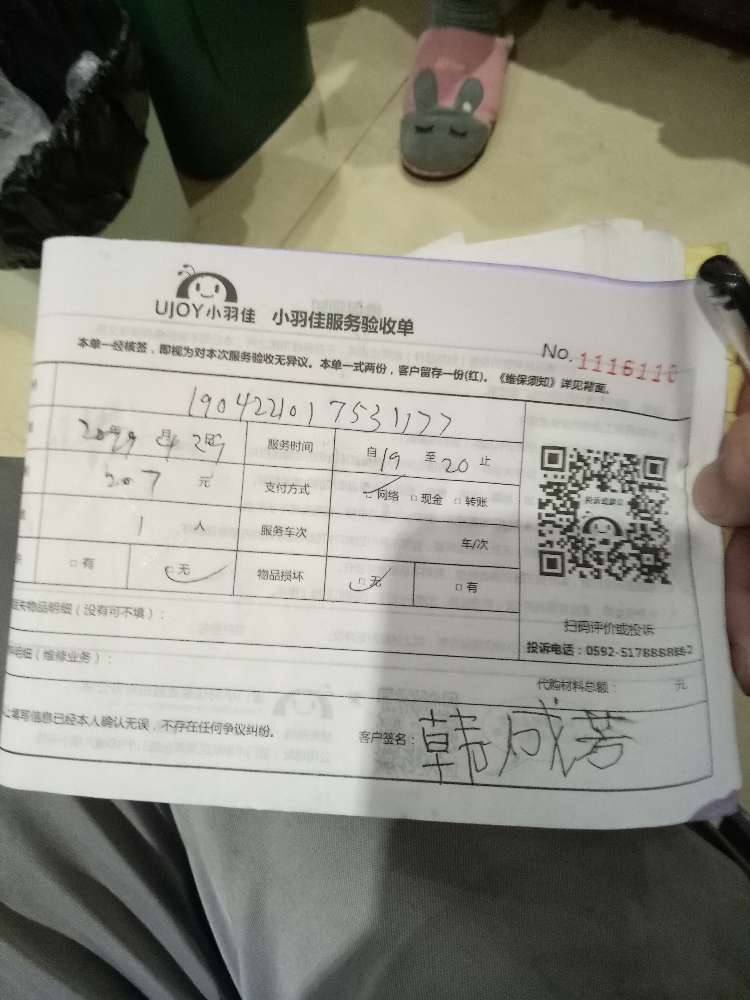 UJOY小羽佳 小羽佳服务验收单
No.1116110
本单一经核签，即视为对本次服务验收无异议。本单一式两份，客户留存一份(红)。《维保须知》详见背面。
1904221017531177
服务时间 自19 至20 止
207 元 支付方式 网络 现金 转账
1 人 服务车次 车/次
有 无 物品损坏 无 有
扫码评价或投诉
物品明细（没有可不填）：
投诉电话：0592-5178888
明细（维修业务）：
代购材料总额： 元
填写信息已经本人确认无误，不存在任何争议纠纷。
客户签名：韩成芳